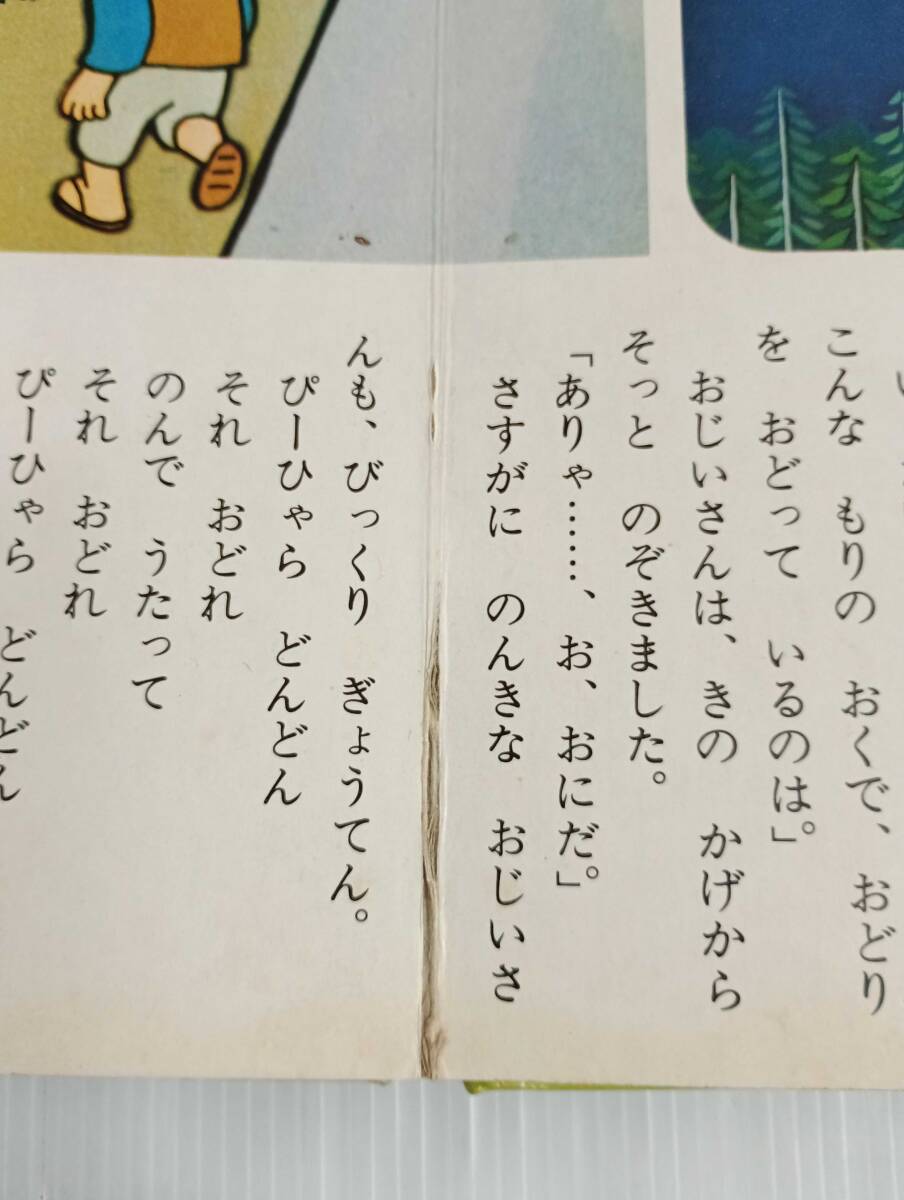 こんな もりの おくで、おどり
を おどって いるのは。」
おじいさんは、きの かげから
そっと のぞきました。
「ありゃ……、お、おにだ。」
さすがに のんきな おじいさ
んも、びっくり ぎょうてん。
ぴーひゃら どんどん
それ おどれ
のんで うたって
それ おどれ
ぴーひゃら どんどん